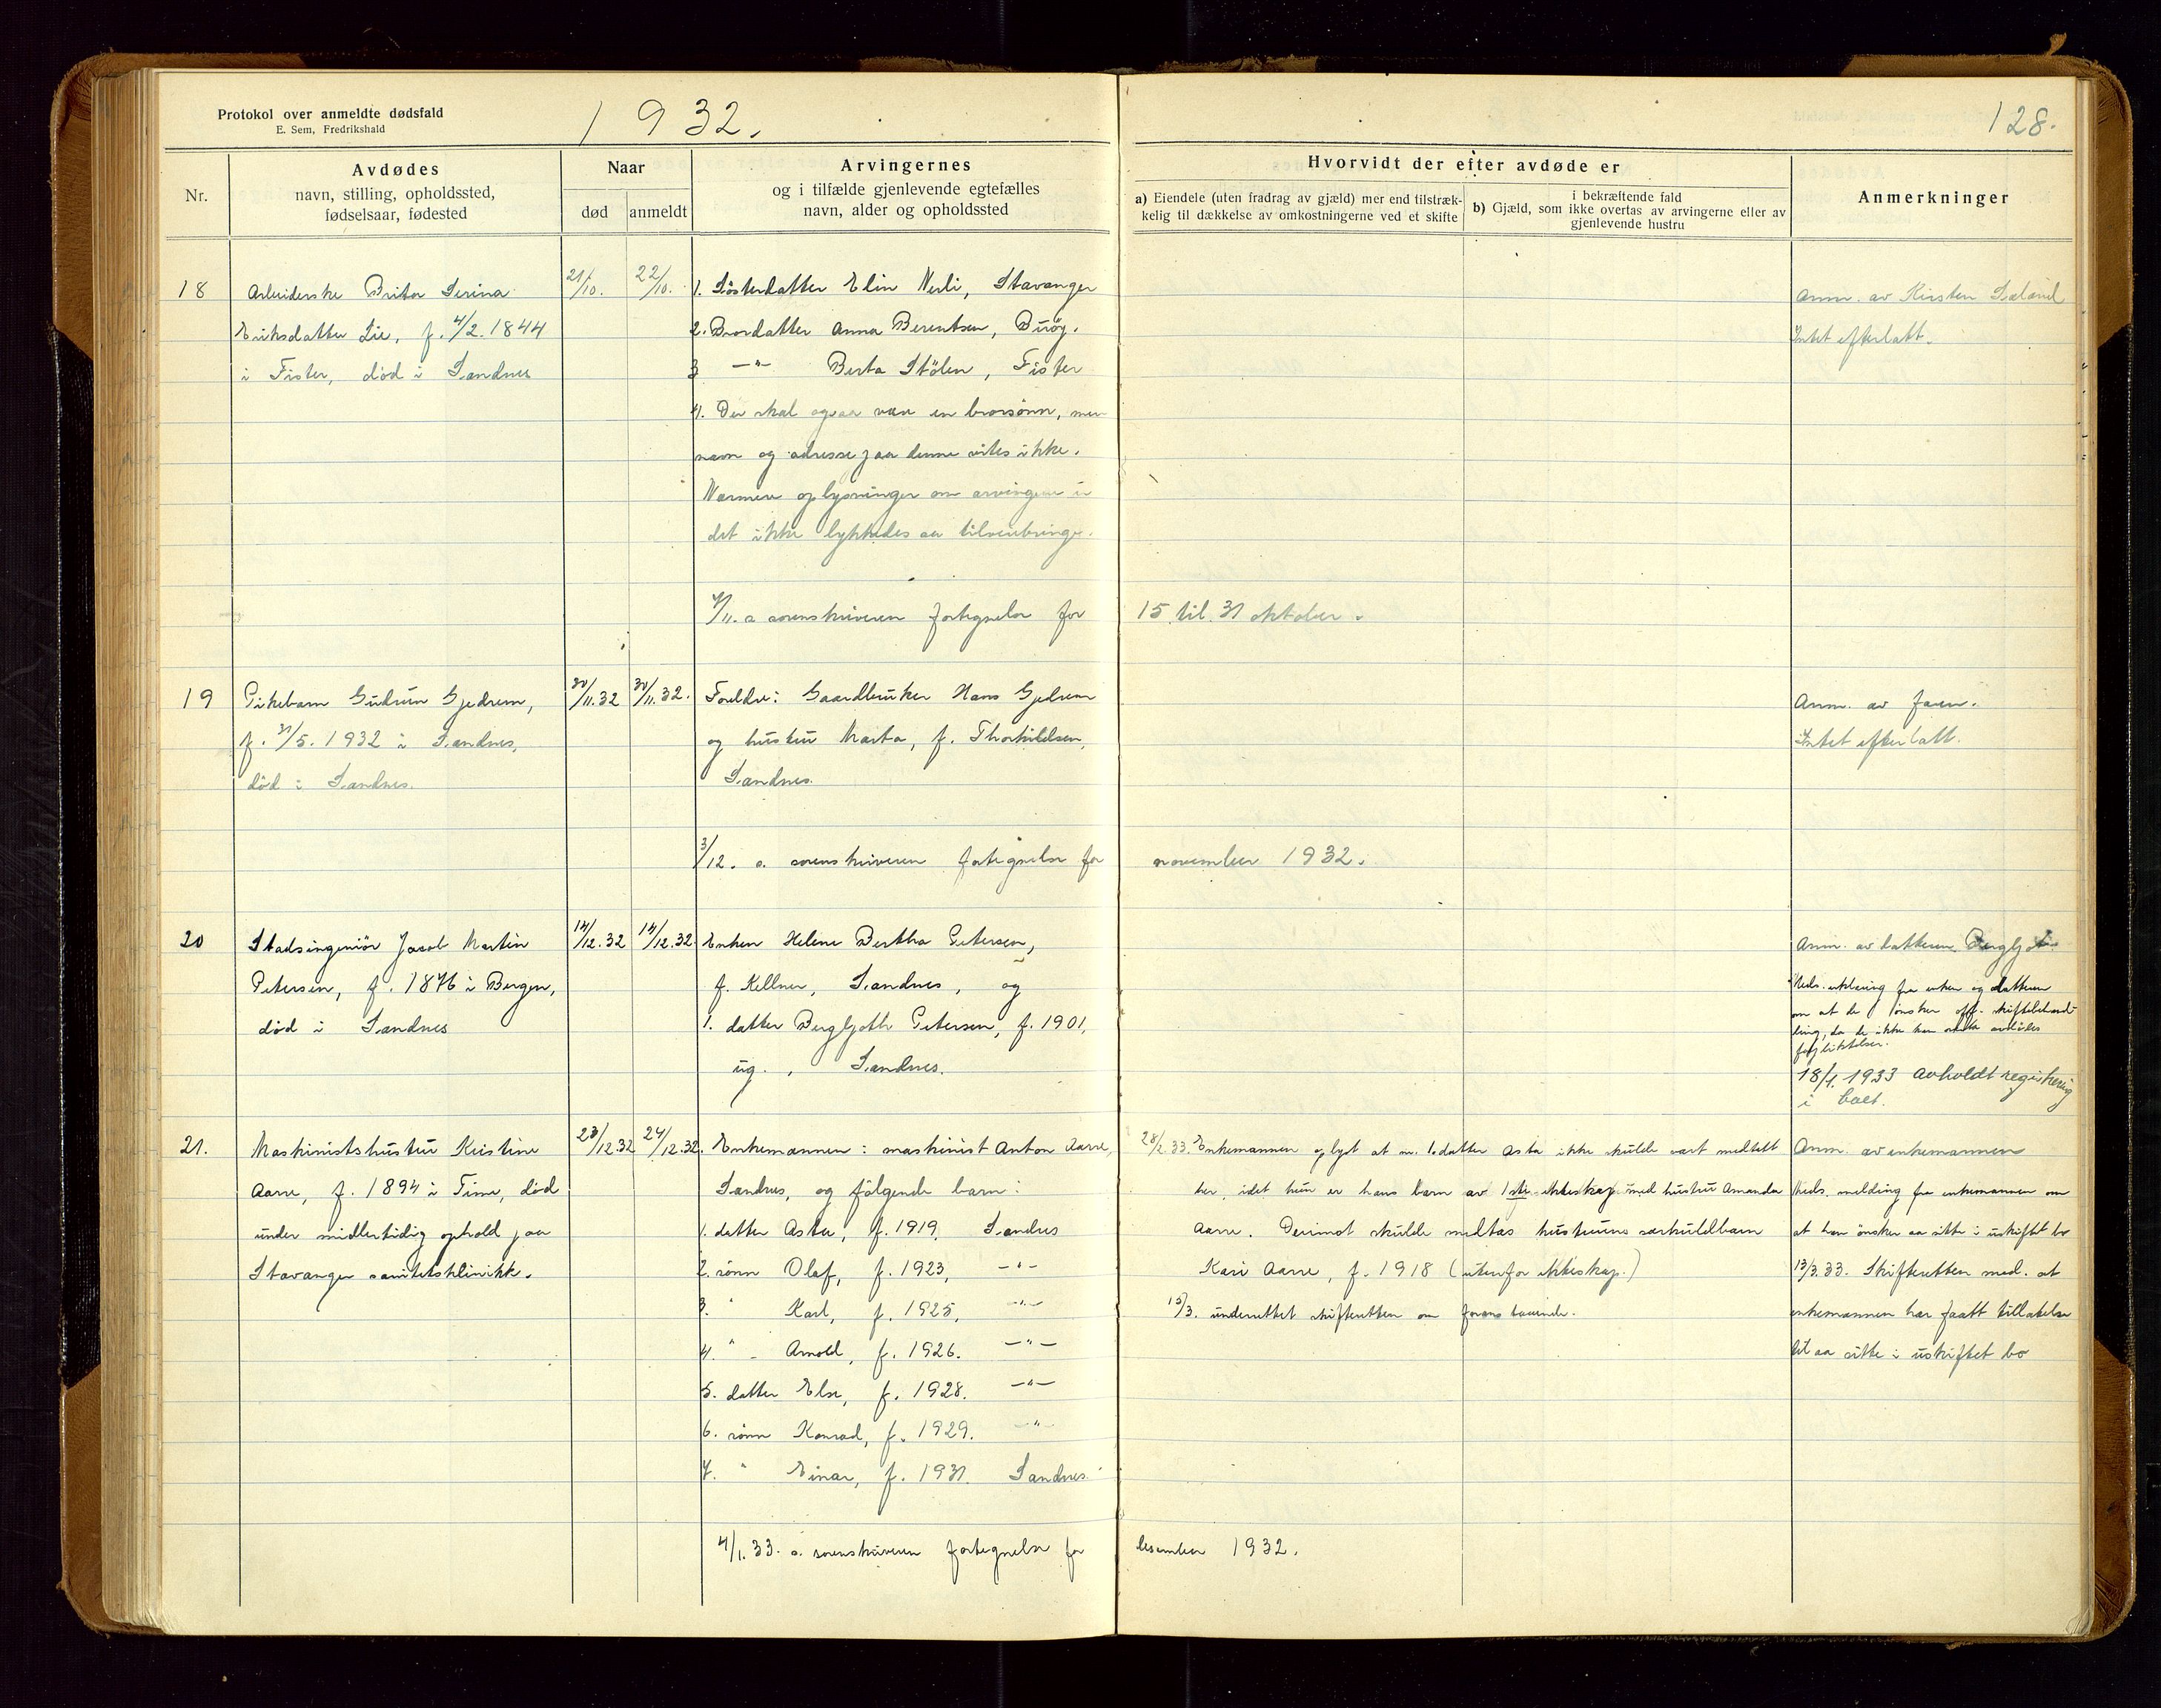 Protokol over anmeldte dødsfald
E. Sem, Fredrikshald
1932.
128.
Nr.
Avdødes
navn, stilling, opholdssted,
fødselsaar, fødested
Naar
død
anmeldt
Arvingernes
og i tilfælde gjenlevende egtefælles
navn, alder og opholdssted
Hvorvidt der efter avdøde er
a) Eiendele (uten fradrag av gjæld) mer end tilstræk-
kelig til dækkelse av omkostningerne ved et skifte
i bekræftende fald
b) Gjæld, som ikke overtas av arvingerne eller av
gjenlevende hustru
Anmerkninger
18
Arbeiderske Brita Serina
Eriksdatter Lie, f. 4/2. 1844
i Fister, död i Sandnes
21/10.
22/10.
1. Søsterdatter Elin Nerli, Stavanger
2. Brordatter Anna Berentsen, Buöy.
3 —"— Berta Stölen, Fister
4. Der skal ogsaa være en brorsönn, men
navn og adresse paa denne vites ikke.
Nærmere oplysninger om arvingene er
det ikke lykkedes aa tilveiebringe.
Anm. av Kirsten Sæland
Intet efterlatt.
4/11. s. sorenskriveren fortegnelse for 15 til 31 oktober.
19
Pikebarn Gudrun Gjedrem,
f. 31/5. 1932 i Sandnes,
död i Sandnes.
30/11.32
30/11.32.
Foreldre: Gaardbruker Hans Gjedrem
og hustru Marta, f. Thorkildsen,
Sandnes.
Anm. av faren.
Intet efterlatt.
3/12. s. sorenskriveren fortegnelse for november 1932.
20
Stadsingeniör Jacob Martin
Petersen, f. 1876 i Bergen,
död i Sandnes
14/12.32
14/12.32
Enken Helene Bertha Petersen,
f. Kellner, Sandnes, og
1. datter Bergljoth Petersen, f. 1901,
ug., Sandnes.
Anm. av datteren Bergljot
Neds. erklæring fra enken og datteren
om at de önsker off. skiftebehand-
ling, da de ikke kan overta avdödes
forpliktelser.
18/1. 1933 avholdt registrering
i boet.
21.
Maskinistshustru Kristine
Aarre, f. 1894 i Time, död
under midlertidig ophold paa
Stavanger sanitetsklinikk.
23/12.32
24/12.32.
Enkemannen: maskinist Anton Aarre,
Sandnes, og fölgende barn:
1. datter Asta, f. 1919, Sandnes
2. sönn Olaf, f. 1923, —"—
3. " Karl, f. 1925, —"—
4. " Arnold, f. 1926. —"—
5. datter Else, f. 1928. —"—
6. sönn Konrad, f. 1929. —"—
7. " Einar, f. 1931. Sandnes.
28/2. 33. Enkemannen oplyst at nr. 1. datter Asta ikke skulde vært medtatt
her, idet hun er hans barn av 1ste ekteskap med hustru Amanda
Aarre. Derimot skulde medtas hustruens særkuldbarn
Kari Aarre, f. 1918 (utenfor ekteskap.)
13/3. underrettet skifteretten om foranstaaende.
Anm. av enkemannen
Neds. melding fra enkemannen om
at han önsker aa sitte i uskiftet bo
13/3.33. Skifteretten med. at
enkemannen har faatt tillatelse
til aa sitte i uskiftet bo
4/1. 33. s. sorenskriveren fortegnelse for desember 1932.